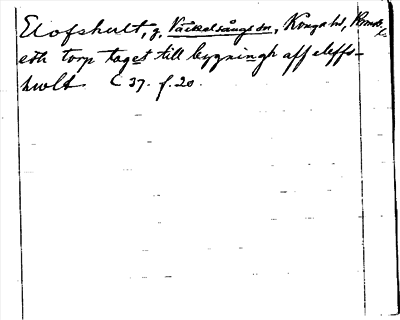 Elofshult, g. Väckelsångs sn, Konga hd, Kronob. l.
eth torp taget till bygningh aff eleffs-
hwlt. C 37. f. 20.